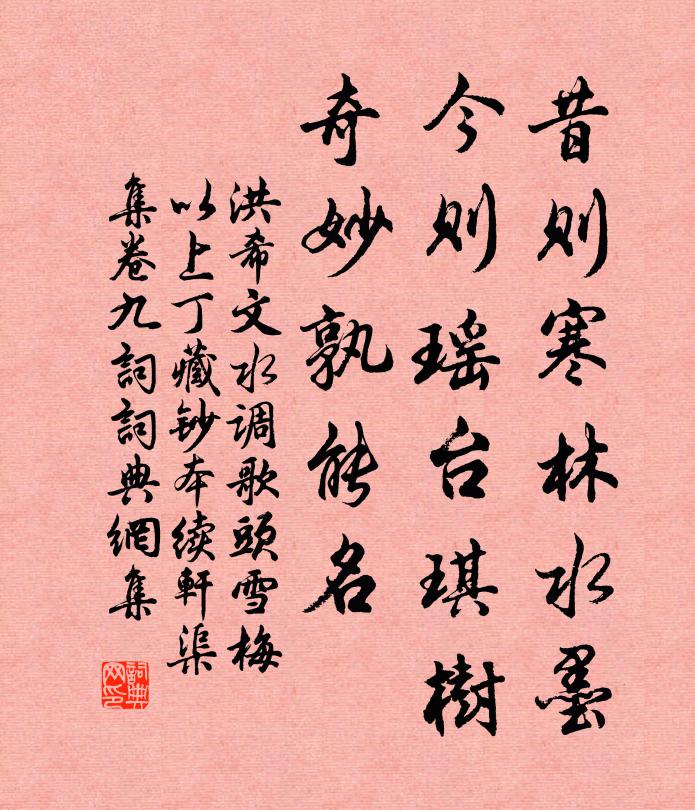 昔则寒林水墨
今则瑶台琪樹
奇妙孰能名
洪希文水调歌頭雪梅
以上丁藏鈔本续軒渠
集卷九詞詞典網集
詞典
网印